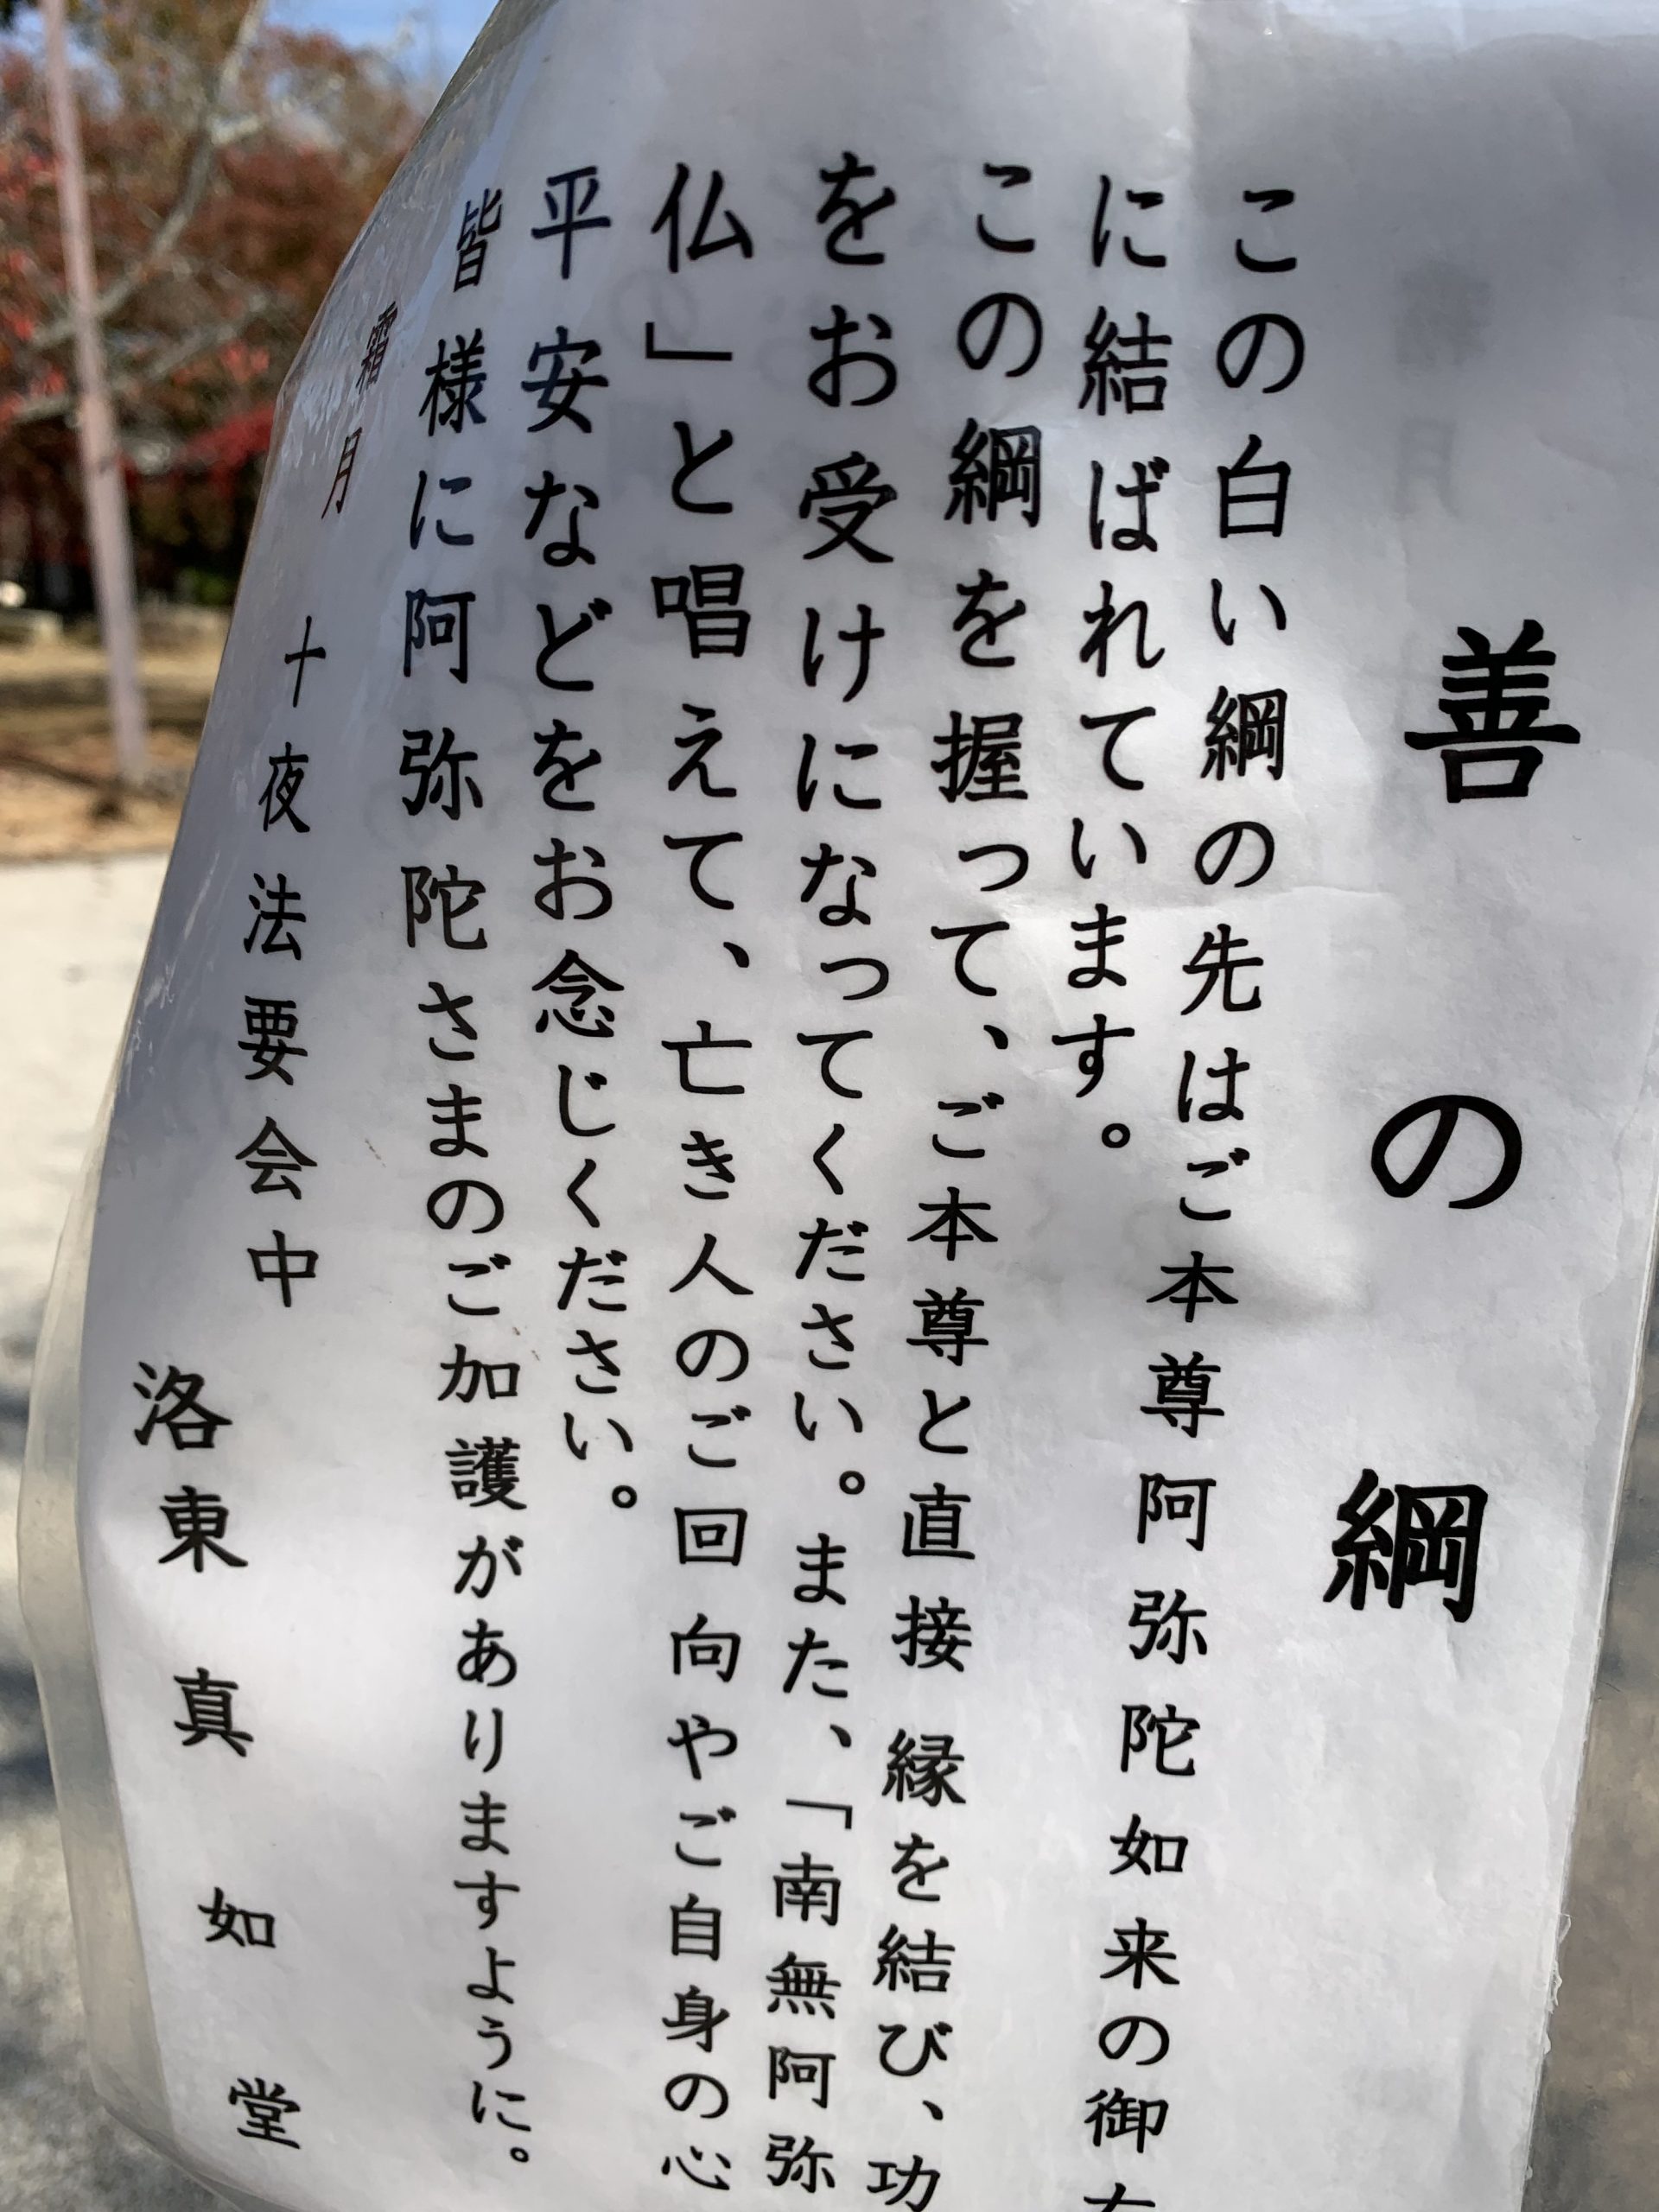 善の綱
この白い綱の先はご本尊阿弥陀如来の御
に結ばれています。
この綱を握って、ご本尊と直接縁を結び、功
をお受けになってください。また、「南無阿弥
仏」と唱えて、亡き人のご回向やご自身の心
平安などをお念じください。
皆様に阿弥陀さまのご加護がありますように。
霜月
十夜法要会中
洛東 真如堂